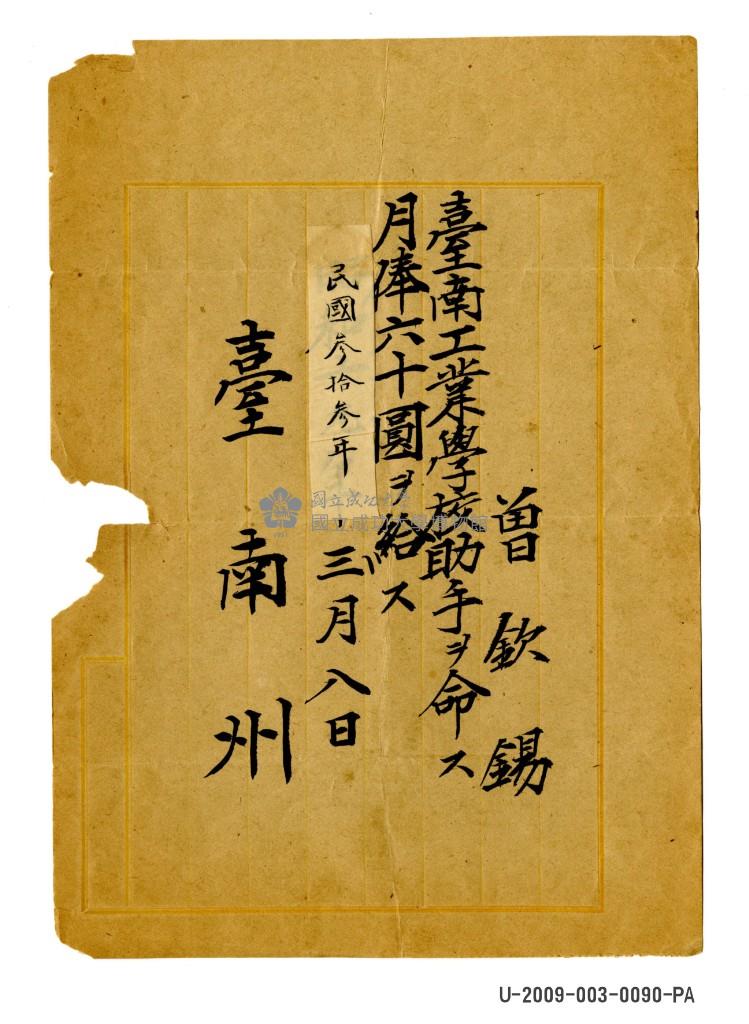 曽欽錫
臺南工業學校助手ヲ命ス
月俸六十圓ヲ給ス
民國參拾參年
三月八日
臺南州
國立成功大學
國立成功大學博物館
U-2009-003-0090-PA